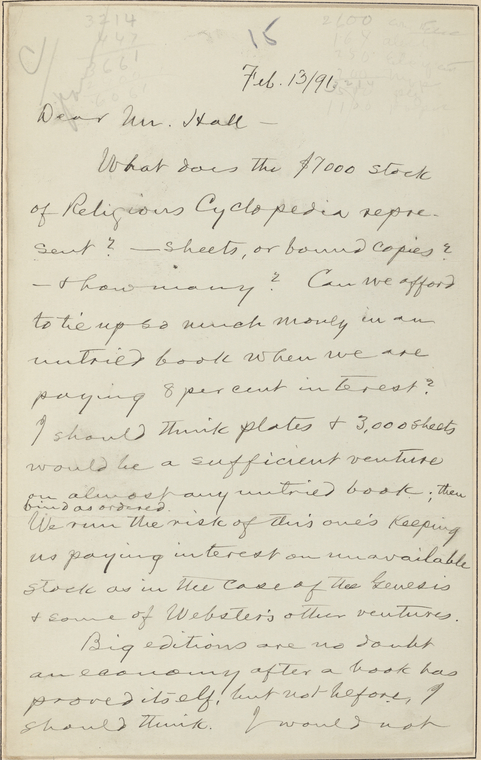 15
Feb. 13/91.
Dear Mr. Hall —
What does the $7000 stock
of Religious Cyclopedia repre-
sent? — sheets, or bound copies?
— & how many? Can we afford
to tie up so much money in an
untried book when we are
paying 8 per cent interest?
I should think plates & 3,000 sheets
would be a sufficient venture
on almost any untried book; then
bind as ordered.
We run the risk of this one's keeping
us paying interest on unavailable
stock as in the case of the Genesis
& some of Webster's other ventures.
Big editions are no doubt
an economy after a book has
proved itself, but not before, I
should think. I would not